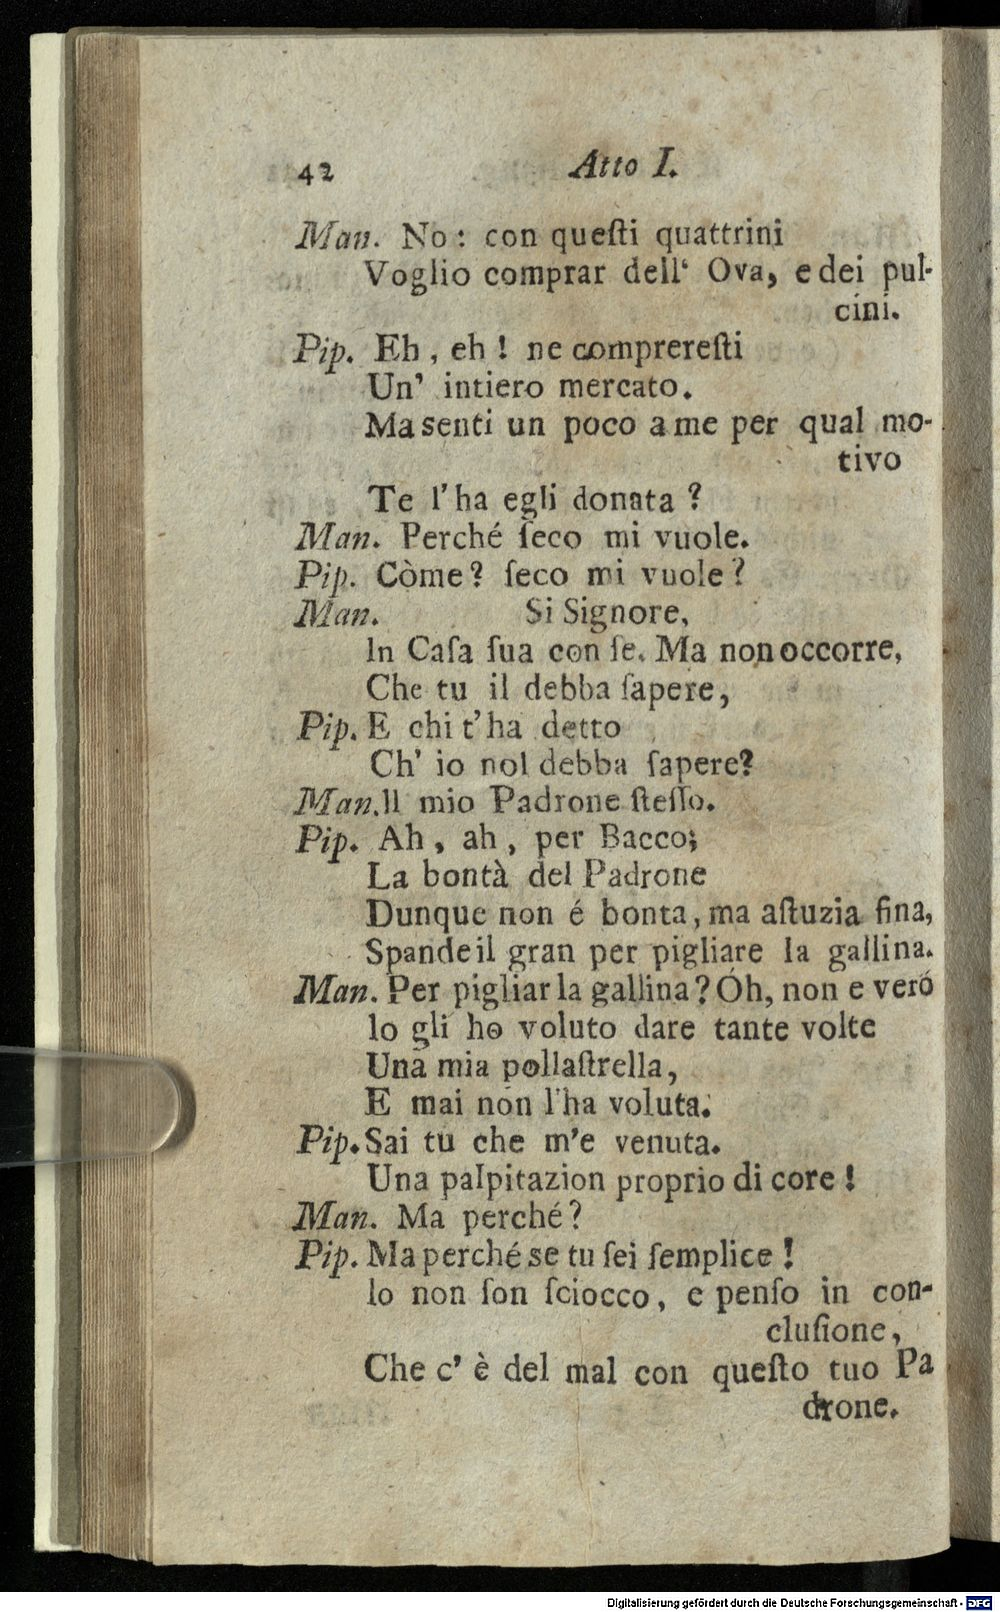 42 Atto I.
Man. No: con queſti quattrini
Voglio comprar dell‘ Ova, e dei pul-
cini.
Pip. Eh, eh! ne comprereſti
Un' intiero mercato.
Ma senti un poco a me per qual mo-
tivo
Te l'ha egli donata?
Man. Perché ſeco mi vuole.
Pip. Còme? ſeco mi vuole?
Man. Si Signore,
In Caſa ſua con ſe. Ma non occorre,
Che tu il debba ſapere,
Pip. E chi t'ha detto
Ch' io nol debba ſapere?
Man. Il mio Padrone ſteſſo.
Pip. Ah, ah, per Bacco;
La bontà del Padrone
Dunque non é bonta, ma aſtuzia fina,
Spande il gran per pigliare la gallina.
Man. Per pigliar la gallina? Óh, non e veró
Io gli ho voluto dare tante volte
Una mia pollaſtrella,
E mai non l'ha voluta.
Pip. Sai tu che m'e venuta.
Una palpitazion proprio di core!
Man. Ma perché?
Pip. Ma perché se tu ſei ſemplice!
Io non ſon ſciocco, e penſo in con-
cluſione,
Che c' è del mal con queſto tuo Pa
drone.
Digitalisierung gefördert durch die Deutsche Forschungsgemeinschaft - DFG